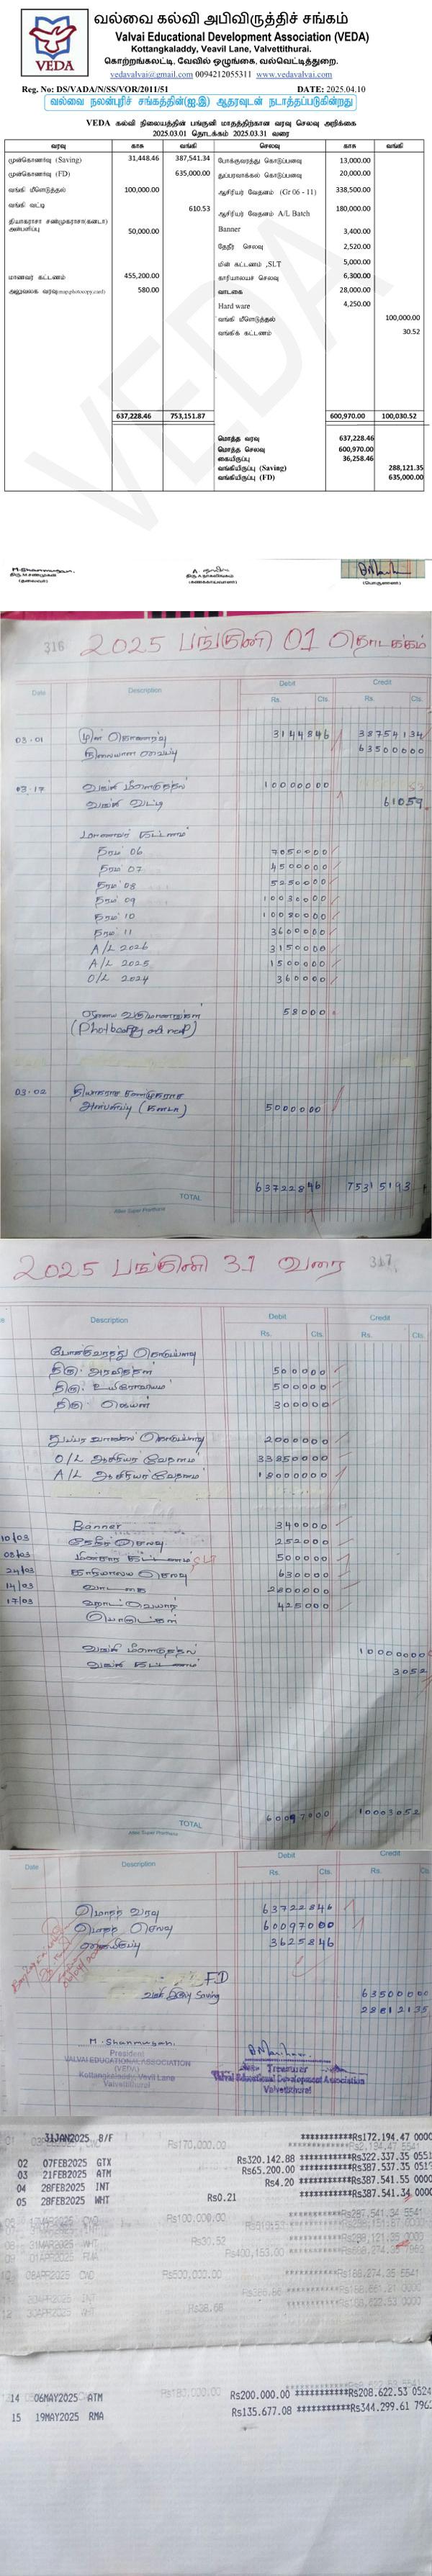 வல்வை கல்வி அபிவிருத்திச் சங்கம்
Valvai Educational Development Association (VEDA)
Kottangkaladdy, Veavil Lane, Valvettithurai.
கொற்றங்கலட்டி, வேவில் ஒழுங்கை, வல்வெட்டித்துறை.
vedavalvai@gmail.com 0094212055311 www.vedavalvai.com
VEDA
Reg. No: DS/VADA/N/SS/VOR/2011/51 DATE: 2025.04.10
வல்வை நலன்புரிச் சங்கத்தின்(ஐ.இ) ஆதரவுடன் நடாத்தப்படுகின்றது
VEDA கல்வி நிலையத்தின் பங்குனி மாதத்திற்கான வரவு செலவு அறிக்கை
2025.03.01 தொடக்கம் 2025.03.31 வரை
வரவு காசு வங்கி செலவு காசு வங்கி
முன்கொணர்வு (Saving) 31,448.46 387,541.34 போக்குவரத்து கொடுப்பனவு 13,000.00
முன்கொணர்வு (FD) 635,000.00 துப்பரவாக்கல் கொடுப்பனவு 20,000.00
வங்கி மீளெடுத்தல் 100,000.00 ஆசிரியர் வேதனம் (Gr 06 - 11) 338,500.00
வங்கி வட்டி 610.53 ஆசிரியர் வேதனம் A/L Batch 180,000.00
தியாகராசா சண்முகராசா(கனடா) அன்பளிப்பு 50,000.00 Banner 3,400.00
தேநீர் செலவு 2,520.00
மின் கட்டணம் ,SLT 5,000.00
மாணவர் கட்டணம் 455,200.00 காரியாலயச் செலவு 6,300.00
அலுவலக வரவு(map,photocopy,card) 580.00 வாடகை 28,000.00
Hard ware 4,250.00
வங்கி மீளெடுத்தல் 100,000.00
வங்கிக் கட்டணம் 30.52
637,228.46 753,151.87 600,970.00 100,030.52
மொத்த வரவு 637,228.46
மொத்த செலவு 600,970.00
கையிருப்பு 36,258.46
வங்கியிருப்பு (Saving) 288,121.35
வங்கியிருப்பு (FD) 635,000.00
VEDA
M. Shanmugan.
(தலைவர்) (கணக்காய்வாளர்) (பொருளாளர்)
316 2025 பங்குனி 01 தொடக்கம்
Date Description Debit Credit
Rs. Cts. Rs. Cts.
03.01 முன் கொணர்வு 31448 46 387541 34
நிலையான வைப்பு 635000 00
03.17 வங்கி மீளெடுத்தல் 100000 00
வங்கி வட்டி 610 59
மாணவர் கட்டணம்
தரம் 06 70500 00
தரம் 07 45000 00
தரம் 08 52500 00
தரம் 09 100300 00
தரம் 10 100800 00
தரம் 11 36000 00
A/L 2026 31500 00
A/L 2025 15000 00
O/L 2024 3600 00
ஏனைய வருமானங்கள் 580 00
03.02 தியாகராசா சண்முகராசா
அன்பளிப்பு (கனடா) 50000 00
TOTAL 637228 46 753151 93
2025 பங்குனி 31 வரை 317
Description Debit Credit
Rs. Cts. Rs. Cts.
போக்குவரத்து கொடுப்பனவு
5000 00
5000 00
3000 00
20000 00
O/L ஆசிரியர் வேதனம் 338500 00
A/L ஆசிரியர் வேதனம் 180000 00
Banner 3400 00
10/03 தேநீர் செலவு 2520 00
08/03 மின்சார கட்டணம் SLT 5000 00
24/03 காரியாலய செலவு 6300 00
14/03 வாடகை 28000 00
17/03 4250 00
வங்கி மீளெடுத்தல் 100000 00
வங்கி கட்டணம் 30 52
TOTAL 600970 00 100030 52
Date Description Debit Credit
Rs. Cts. Rs.
மொத்த வரவு 637228 46
மொத்த செலவு 600970 00
கையிருப்பு 36258 46
FD 635000 00
Saving 288121 35
M. Shanmugan.
President
VALVAI EDUCATIONAL ASSOCIATION
(VEDA)
Kottangkaladdy, Vevil Lane
Valvettithurai
Treasurer
Valvai Educational Development Association
Valvettithurai
31JAN2025 B/F ***********Rs172,194.47 0000
02 07FEB2025 GTX Rs320,142.88 ***********Rs322,337.35 0551
03 21FEB2025 ATM Rs65,200.00 ***********Rs387,537.35 051
04 28FEB2025 INT Rs4.20 ***********Rs387,541.55 0000
05 28FEB2025 WHT Rs0.21 ***********Rs387,541.34 0000
14 06MAY2025 ATM Rs200,000.00 ***********Rs208,622.53 0524
15 19MAY2025 RMA Rs135,677.08 ***********Rs344,299.61 796